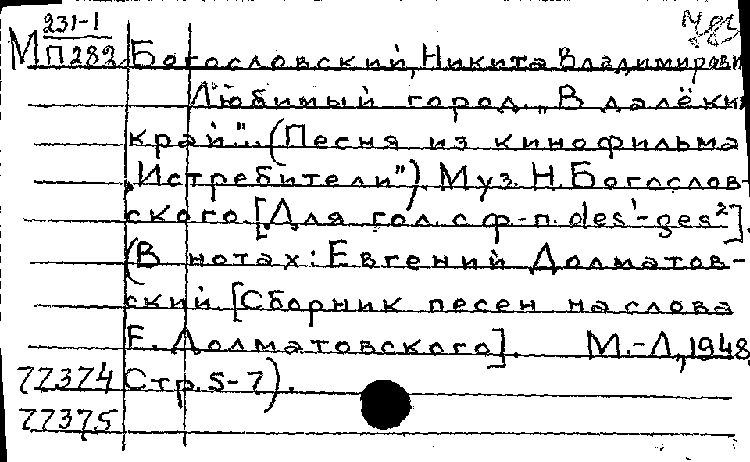 231-1
М П282 Богословский, Никита Владимирови
Любимый город „В далёкий
край"..(Песня из кинофильма
„Истребители"). Муз. Н. Богослов-
ского. [Для гол. с ф-п. des¹-ges²].
(В нотах: Евгений Долматов-
ский [Сборник песен на слова
Е. Долматовского]. М.-Л., 1948,
77374 Стр. 5-7).
77375